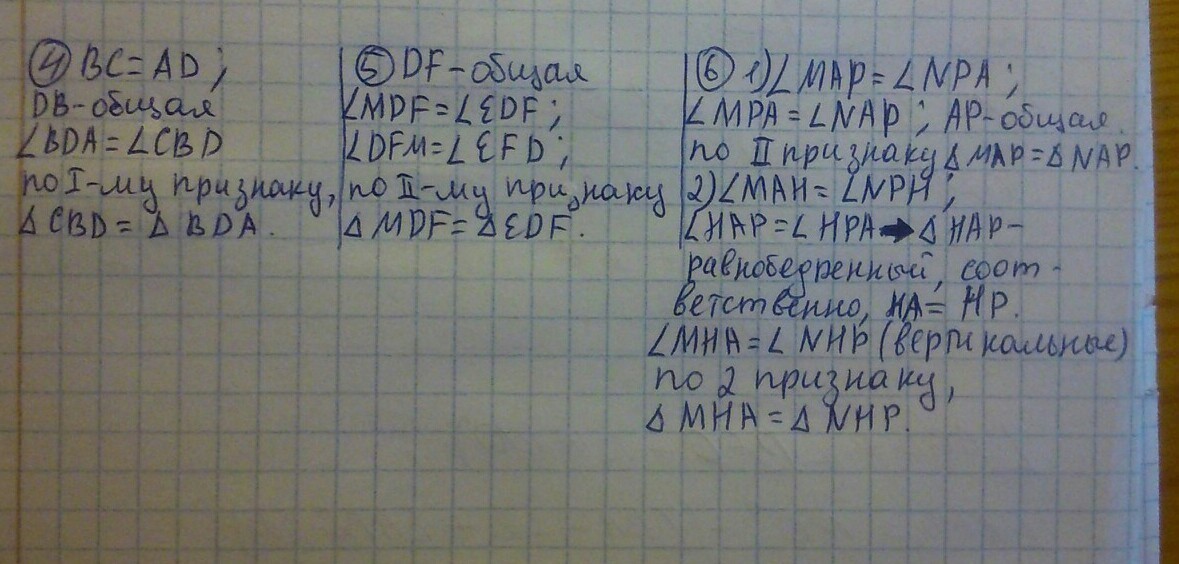 ④ BC = AD;
DB - общая
∠BDA = ∠CBD
по I-му признаку,
Δ CBD = Δ BDA.
⑤ DF - общая
∠MDF = ∠EDF;
∠DFM = ∠EFD;
по II-му признаку
Δ MDF = Δ EDF.
⑥ 1) ∠MAP = ∠NPA;
∠MPA = ∠NAP; AP - общая.
по II признаку Δ MAP = Δ NAP.
2) ∠MAH = ∠NPH;
∠HAP = ∠HPA → Δ HAP -
равнобедренный, соот-
ветственно, HA = HP.
∠MHA = ∠NHP (вертикальные)
по 2 признаку,
Δ MHA = Δ NHP.